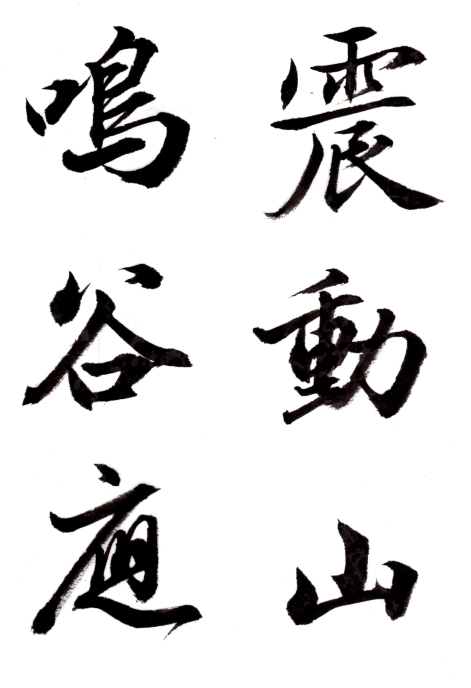 震動山
鳴谷應